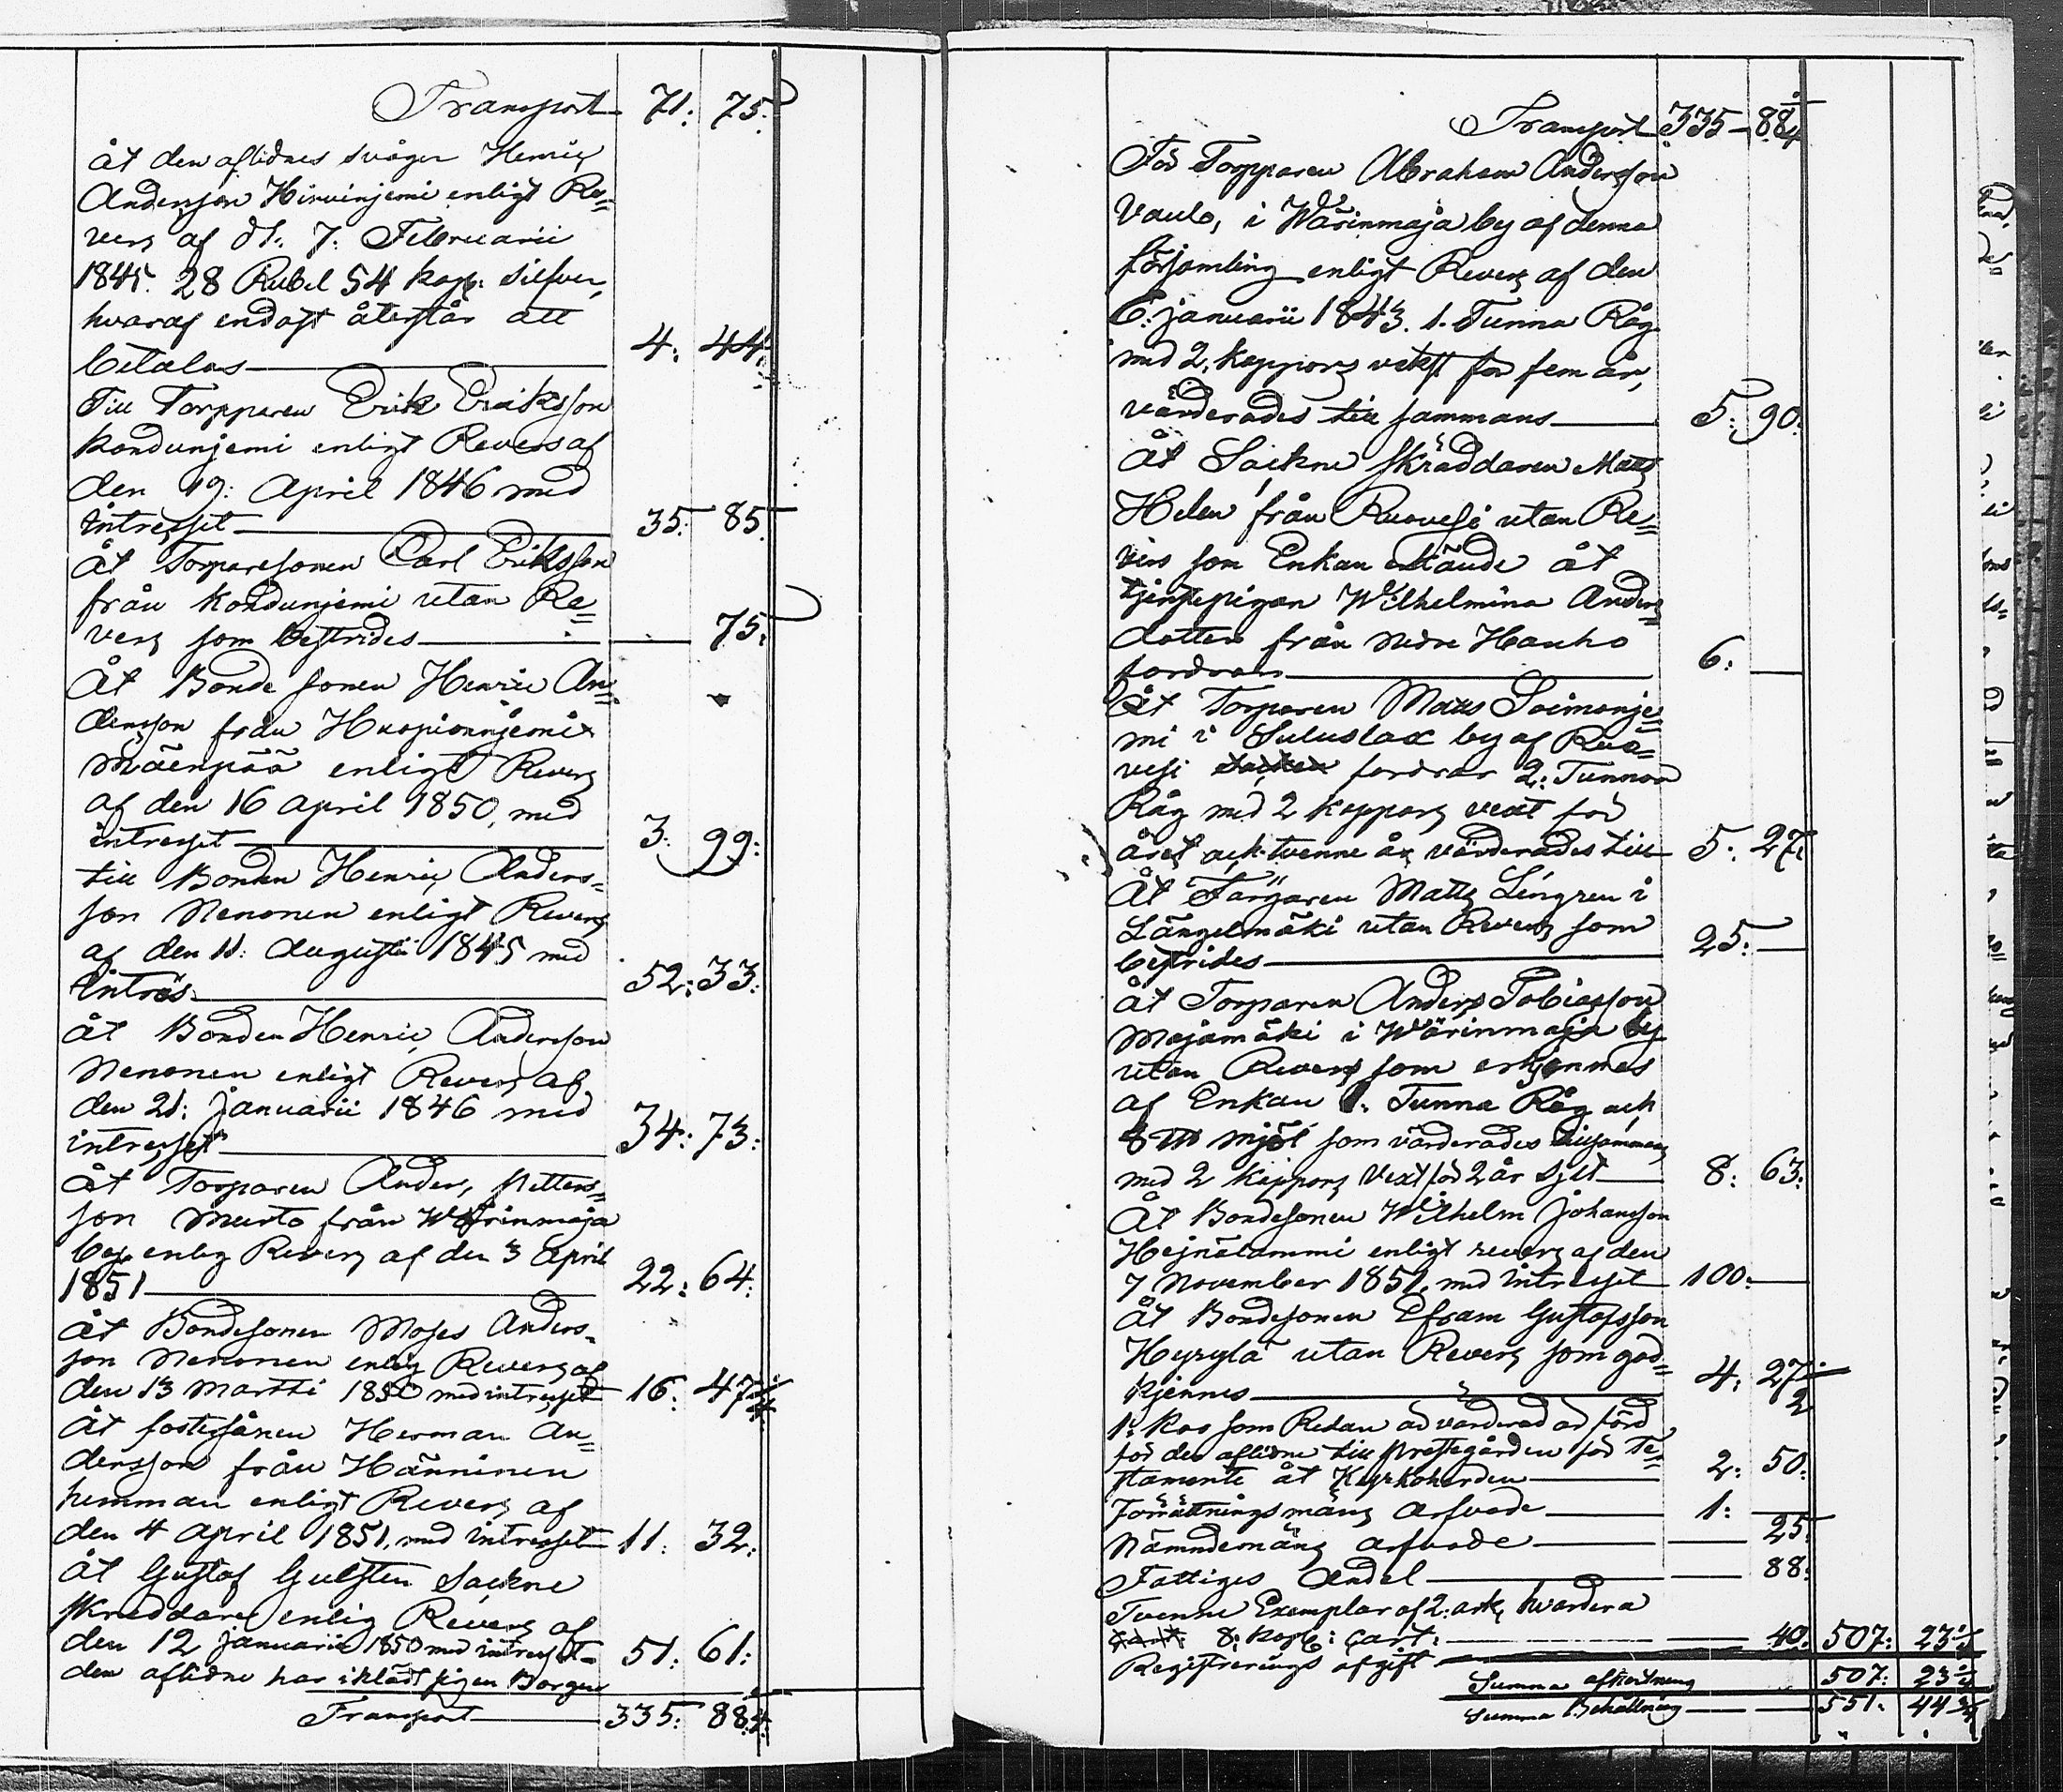 Transport 71: 75.
åt den aflidnes svåger Henric
Andersson Hirvinjemi enligt Re=
vers af d 1: 7: Februarii
1845. 28 Rubel 54 kop: silfver,
hvaraf endast återstår att
betalas 4: 44:
Till Torpparen Erik Eriksson
Kordunjemi enligt Revers af
den 19: April 1846 med
intresset 35: 85.
Åt Torparesonen Carl Eriksson
från Kordunjemi utan Re=
vers som bestrides 75:
Åt Bonde sonen Henric An=
dersson från
Mäenpää enligt Revers
af den 16 April 1850, med
intresset 3: 99:
till Bonden Henric Anders=
son Nenonen enligt Revers
af den 11: Augusti 1845 med
Intres 52: 33:
Åt Bonden Henric Andersson
Nenonen enligt Revers af
den 21: Januarii 1846 med
intresset 34: 73:
Åt Torparen Anders Petters=
son Murto från Wärinmaja
by enlig Revers af den 3 April
1851 22: 64:
Åt Bondesonen Moses Anders=
son Nenonen enlig Revers af
den 13 Martti 1850 med intresset 16: 47
Åt fostersånen Herman An=
dersson från Hänninen
hemman enligt Revers af
den 4 April 1851, med intresset 11: 32:
Åt Gustaf Gulsten Sockne
skreddare enlig Revers af
den 12 Januarii 1850 med intresset 51: 61:
den aflidne har iklädt sig en Borgen
Transport 335: 88 1/4:
Transport 335 — 88 1/4
För Torpparen Abraham Andersson
Vaulo, i Wärinmaja by af denna
församling enligt Revers af den
6: Januarii 1843. 1. Tunna Råg
med 2, kappors vekst för fem år,
värderades till sammans 5: 90:
Åt Sockne skräddaren Mats
Helen från Ruovesi utan Re=
vers som Enkan erkände åt
tjenstepigan Wilhelmina Anders=
dotter från nedre Hanho
fordran 6: —
Åt Torparen Mats Soimonje=
mi i Suluslax by af Ruo=
vesi fordrar 2: Tunnor
Råg med 2 kappors vext för
året och tvenne år värderades till 5: 27:
Åt Färgaren Matts Lingren i
Längelmäki utan Revers som
bestrides 25: —
Åt Torparen Anders Tobiasson
Majamäki i Wärinmaja by
utan Revers som erkjennes
af Enkan 1: Tunna Råg och
8 mjöl som värderades tillsammans
med 2 kappors Vext för 2 år sylt 8: 63:
Åt Bondesonen Wilhelm Johansson
Hejnälammi enligt revers af den
7 November 1851, med intresset 100: —
Åt Bondesonen Efram Gustafsson
Hyrylä utan Revers som god=
kjennes 4: 27 1/2
1: Koo som Redan ad värderad ad förd
för den aflidne till prestegården för Te=
stamente åt Kyrkoherden 2: 50:
Förrättningsmans arfvode 1: —
Nämndemäns arfvode — 25:
Fattiges Andel — 88:
Tvenne Exemplar af 2: ark, hvardera
8: kop: Cart: — 40. 507: 23 1/4
Registrerings afgift
Summa afkortning 507: 23 1/4
Summa Behållning 551. 44 3/4